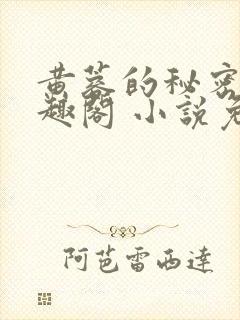 黄蓉的秘密
趣閣 小說免
阿芭雷西達